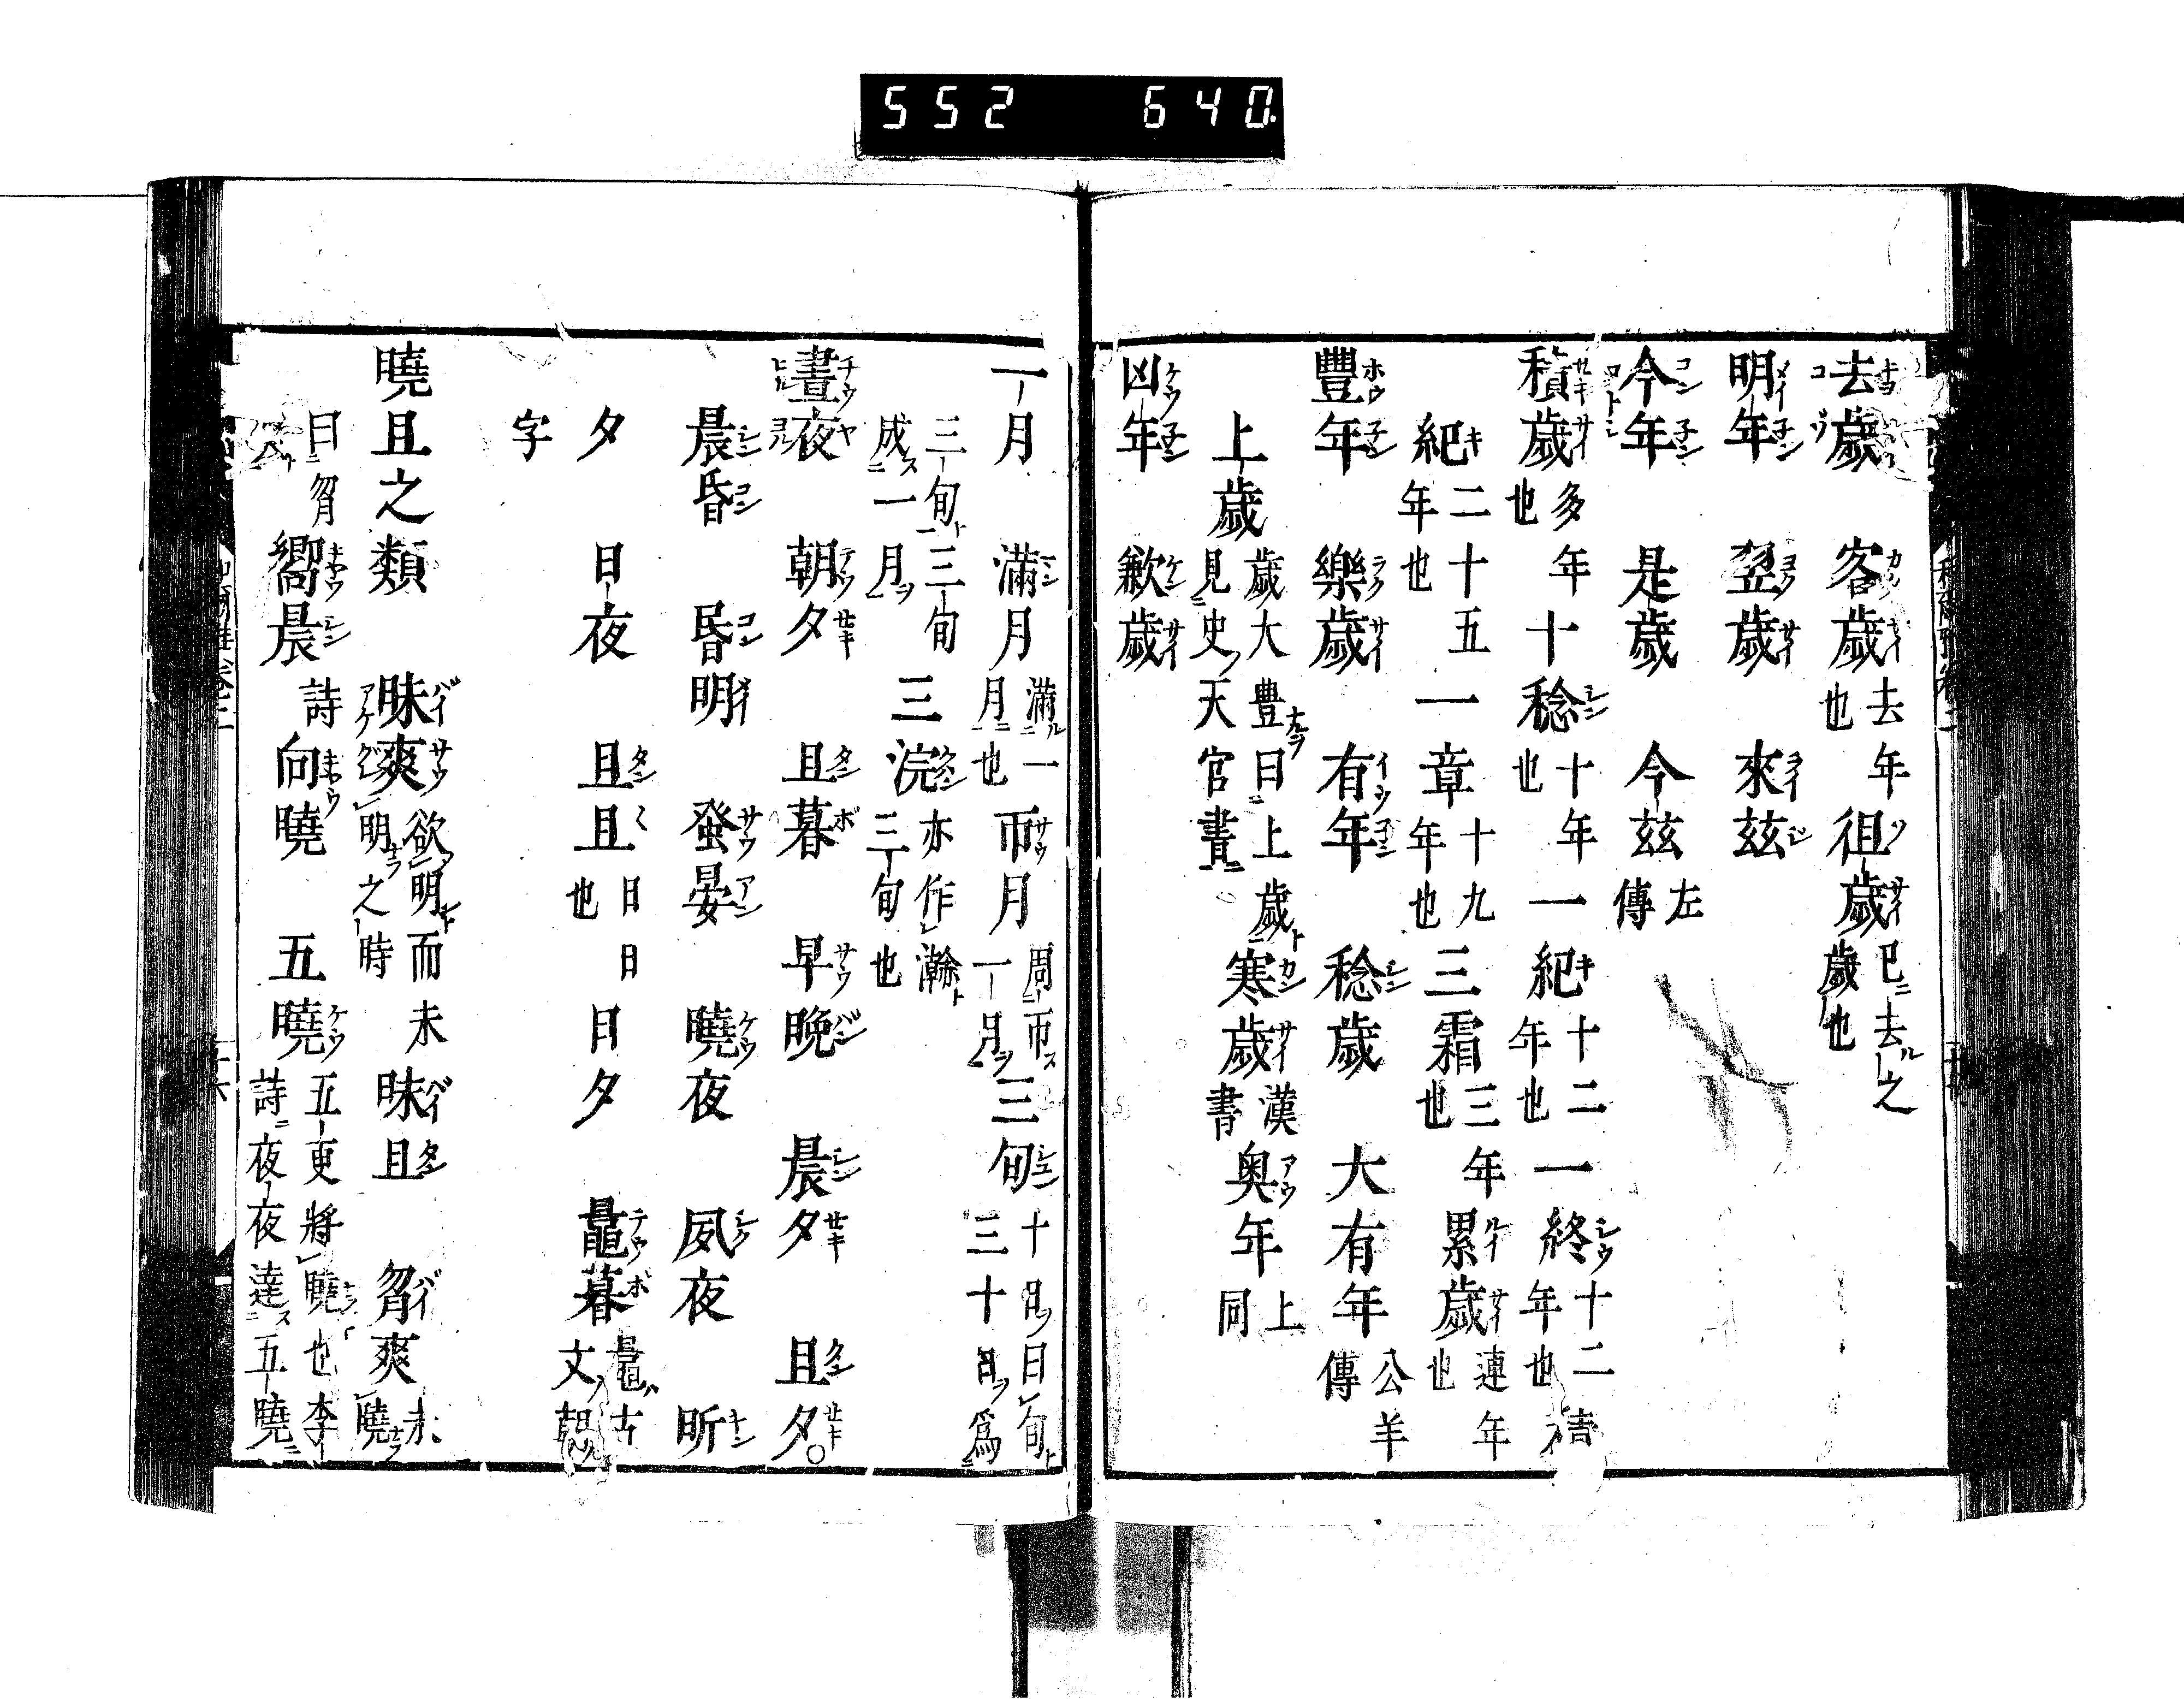 552 640.
去歲 客歲 去年也 徂歲 已去之歲也
明年 翌歲 來茲
今年 是歲 今茲 左傳
積歲 多年也 十稔 十年也 一紀 十二年也 一終 十二年也
紀 二十五年也 一章 十九年也 三霜 三年也 累歲 連年也
豐年 樂歲 有年 稔歲 大有年 公羊傳
上歲 歲大豊曰上歲見史天官書 寒歲 漢書 奥年 上同
凶年 歉歲
一月 滿月 滿一月也 帀月 周帀一月 三旬 十日曰旬三十日爲
三旬三旬成一月 三浣 亦作瀚三旬也
晝夜 朝夕 旦暮 早晚 晨夕 旦夕○
晨昏 昬明 蚤晏 曉夜 夙夜 昕
夕 日夜 旦旦 日日也 日夕 鼂暮 鼂古文
字
曉旦之類 昧爽 欲明而未明之時 昧旦 曶爽 未曉
曰曶 嚮晨 詩 向曉 五曉 五更將曉也李詩夜夜達五曉